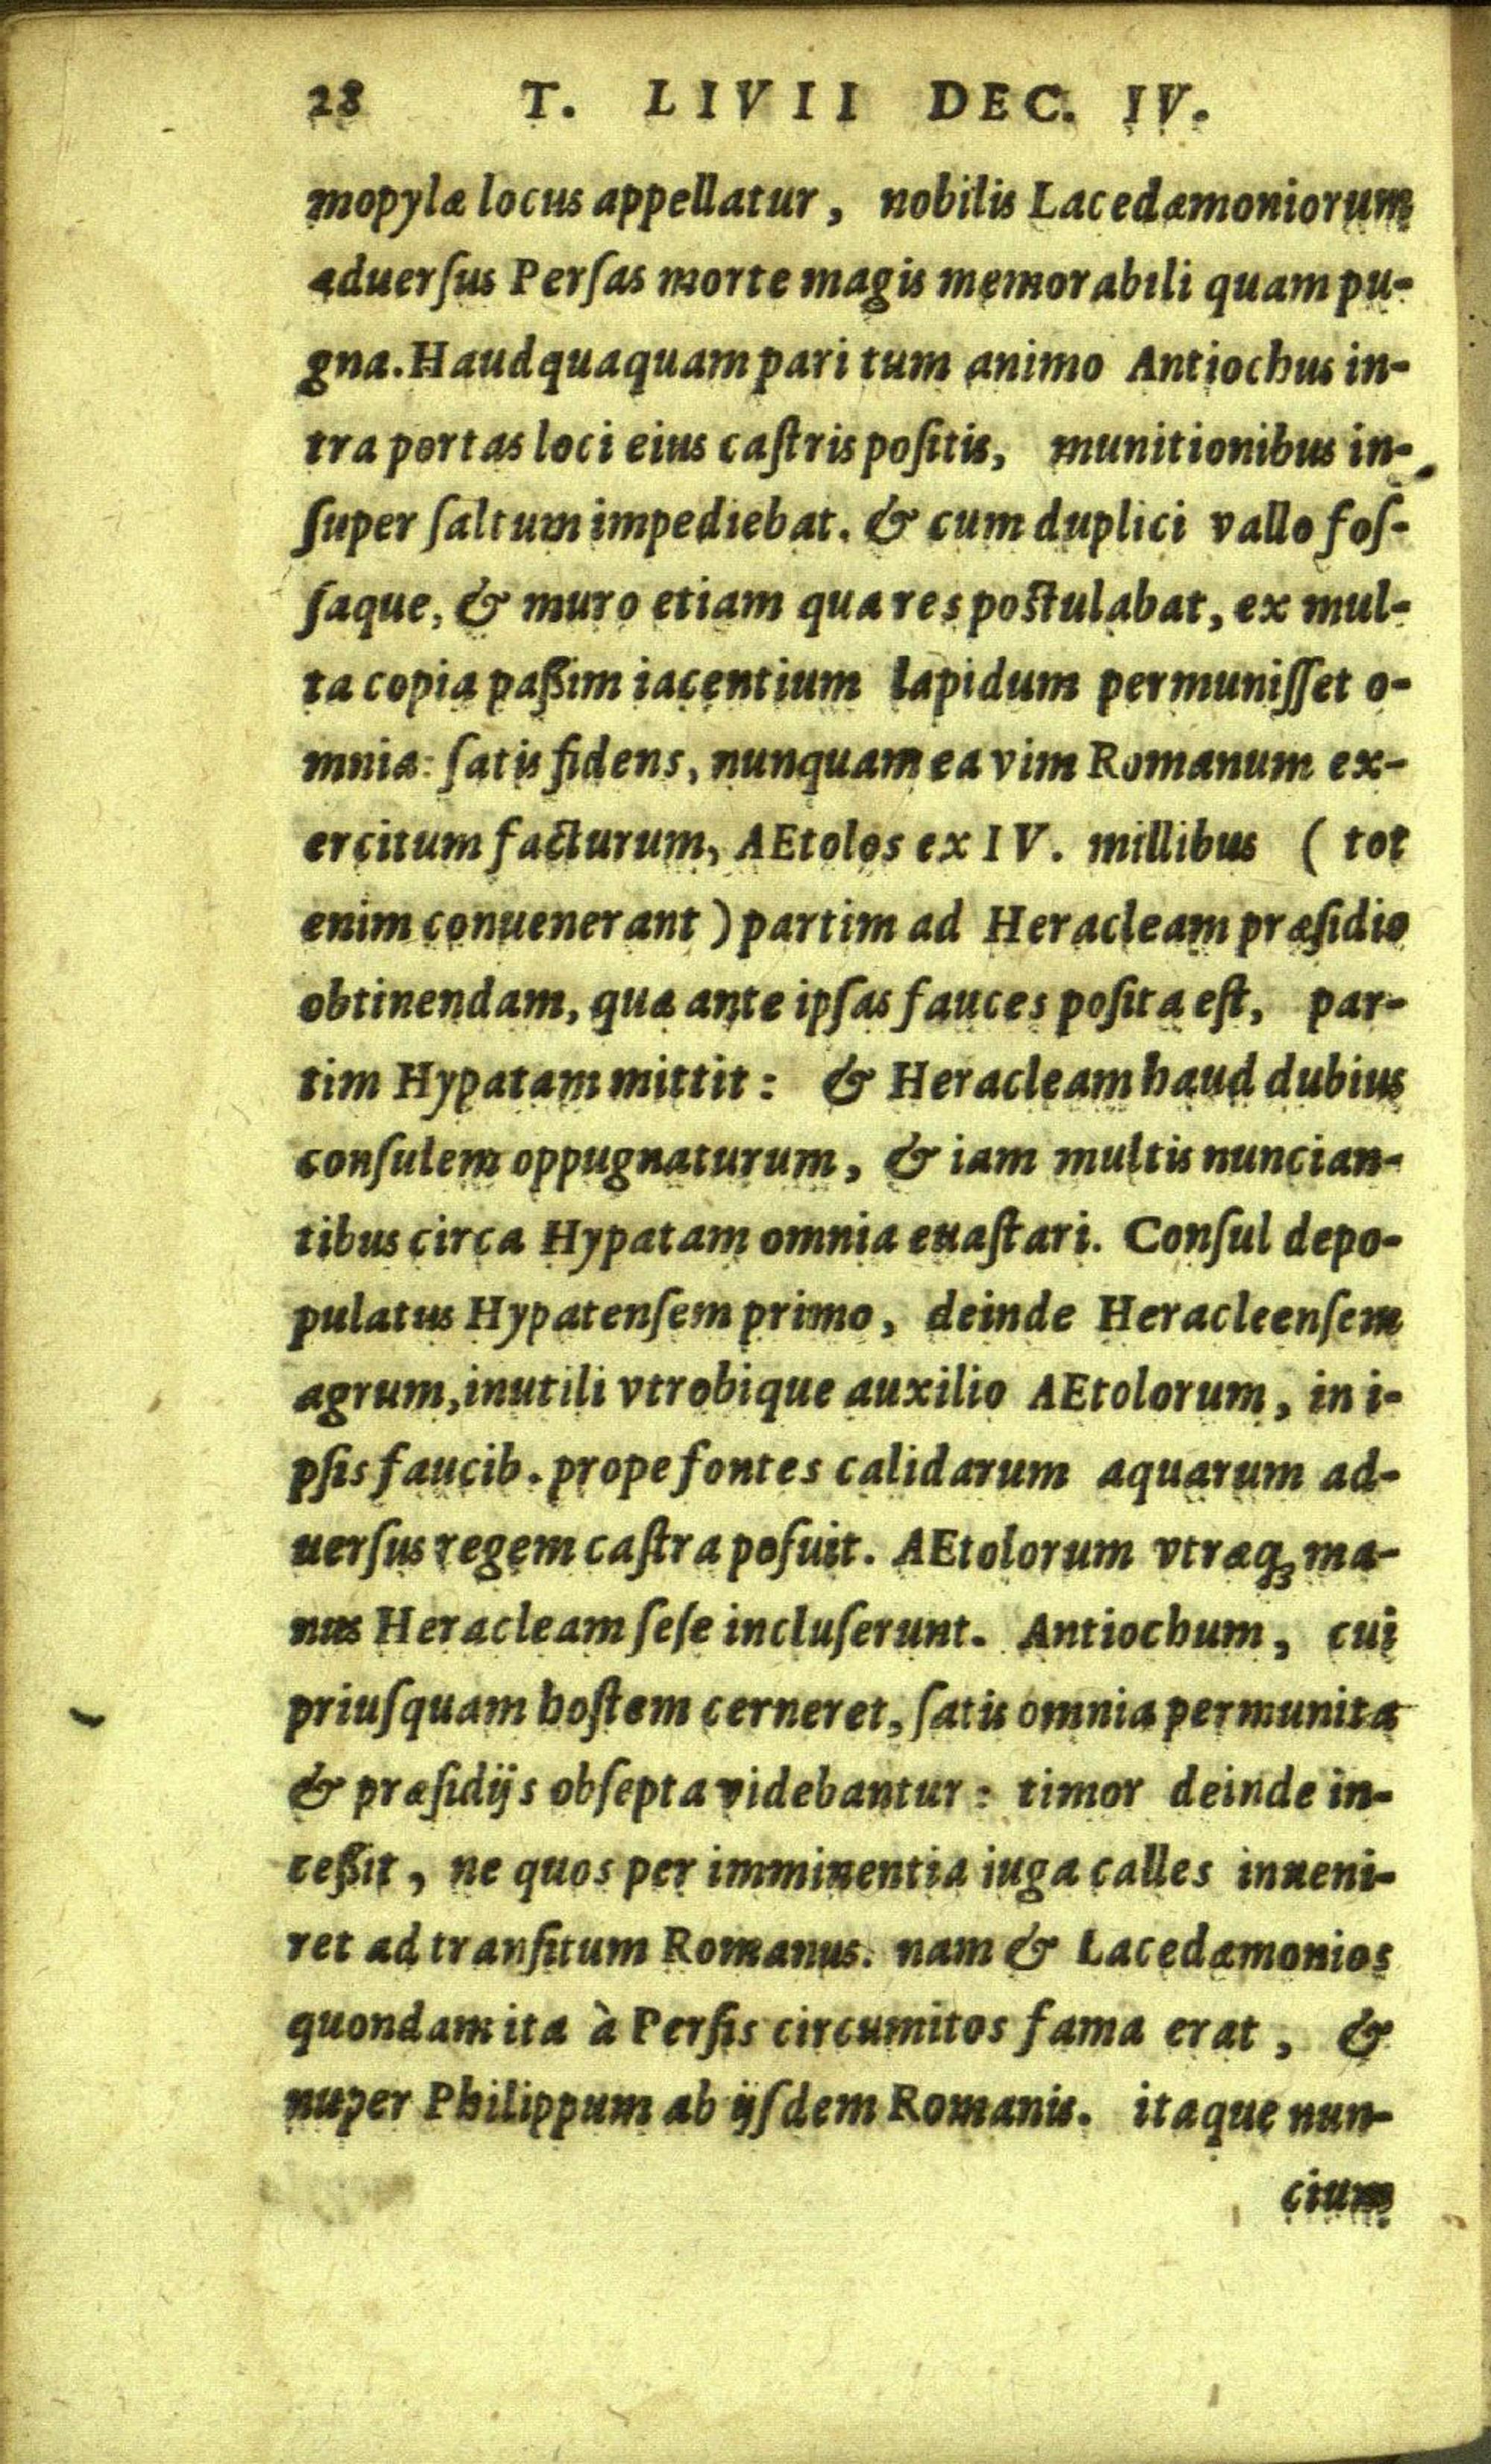 28 T. LIVII DEC. IV.
mopylæ locus appellatur, nobilis Lacedæmoniorum
aduerſus Perſas morte magis memorabili quam pu-
gna. Haudquaquam pari tum animo Antiochus in-
tra portas loci eius caſtris poſitis, munitionibus in-
ſuper ſaltum impediebat. & cum duplici vallo foſ-
ſaque, & muro etiam qua res poſtulabat, ex mul-
ta copia paßim iacentium lapidum permuniſſet o-
mnia: ſatis fidens, nunquam ea vim Romanum ex-
ercitum facturum, AEtolos ex IV. millibus ( tot
enim conuenerant ) partim ad Heracleam præſidio
obtinendam, quæ ante ipſas fauces poſita eſt, par-
tim Hypatam mittit: & Heracleam haud dubius
conſulem oppugnaturum, & iam multis nuncian-
tibus circa Hypatam omnia euaſtari. Conſul depo-
pulatus Hypatenſem primo, deinde Heracleenſem
agrum, inutili vtrobique auxilio AEtolorum, in i-
pſis faucib. prope fontes calidarum aquarum ad-
uerſus regem caſtra poſuit. AEtolorum vtræq; ma-
nus Heracleam ſeſe incluſerunt. Antiochum, cui
priuſquam hoſtem cerneret, ſatis omnia permunita
& præſidijs obſepta videbantur: timor deinde in-
ceßit, ne quos per imminentia iuga calles inueni-
ret ad tranſitum Romanus. nam & Lacedæmonios
quondam ita à Perſis circumitos fama erat, &
nuper Philippum ab ijſdem Romanis. itaque nun-
cium